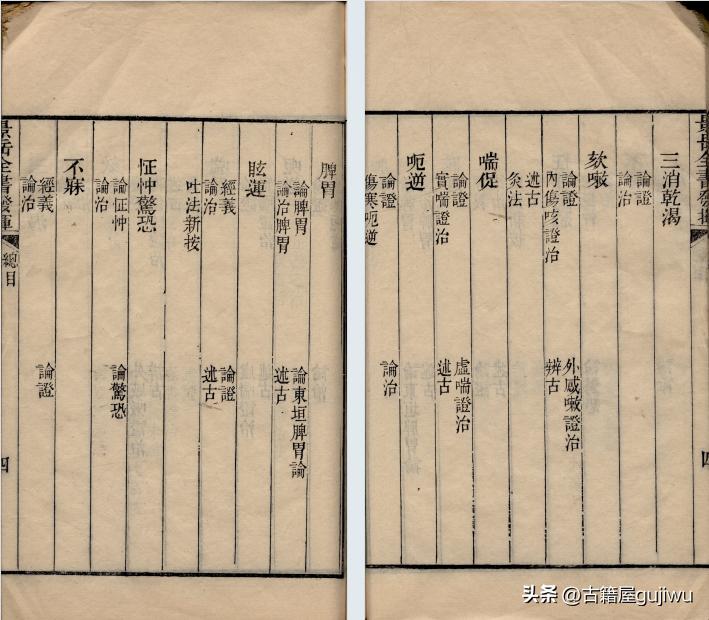 三消乾渴
論證
論治
欬嗽
論證 外感嗽證治
內傷咳證治 辨古
述古
灸法
喘促
論證 虛喘證治
實喘證治 述古
呃逆
論證 論治
傷寒呃逆
脾胃
論脾胃 論東垣脾胃論
論治脾胃 述古
眩運
經義 論證
論治 述古
吐法新按
怔忡驚恐
論怔忡 論驚恐
論治
不寐
經義 論證
論治
景岳全書發揮 總目 四
头条 @古籍屋gujiwu